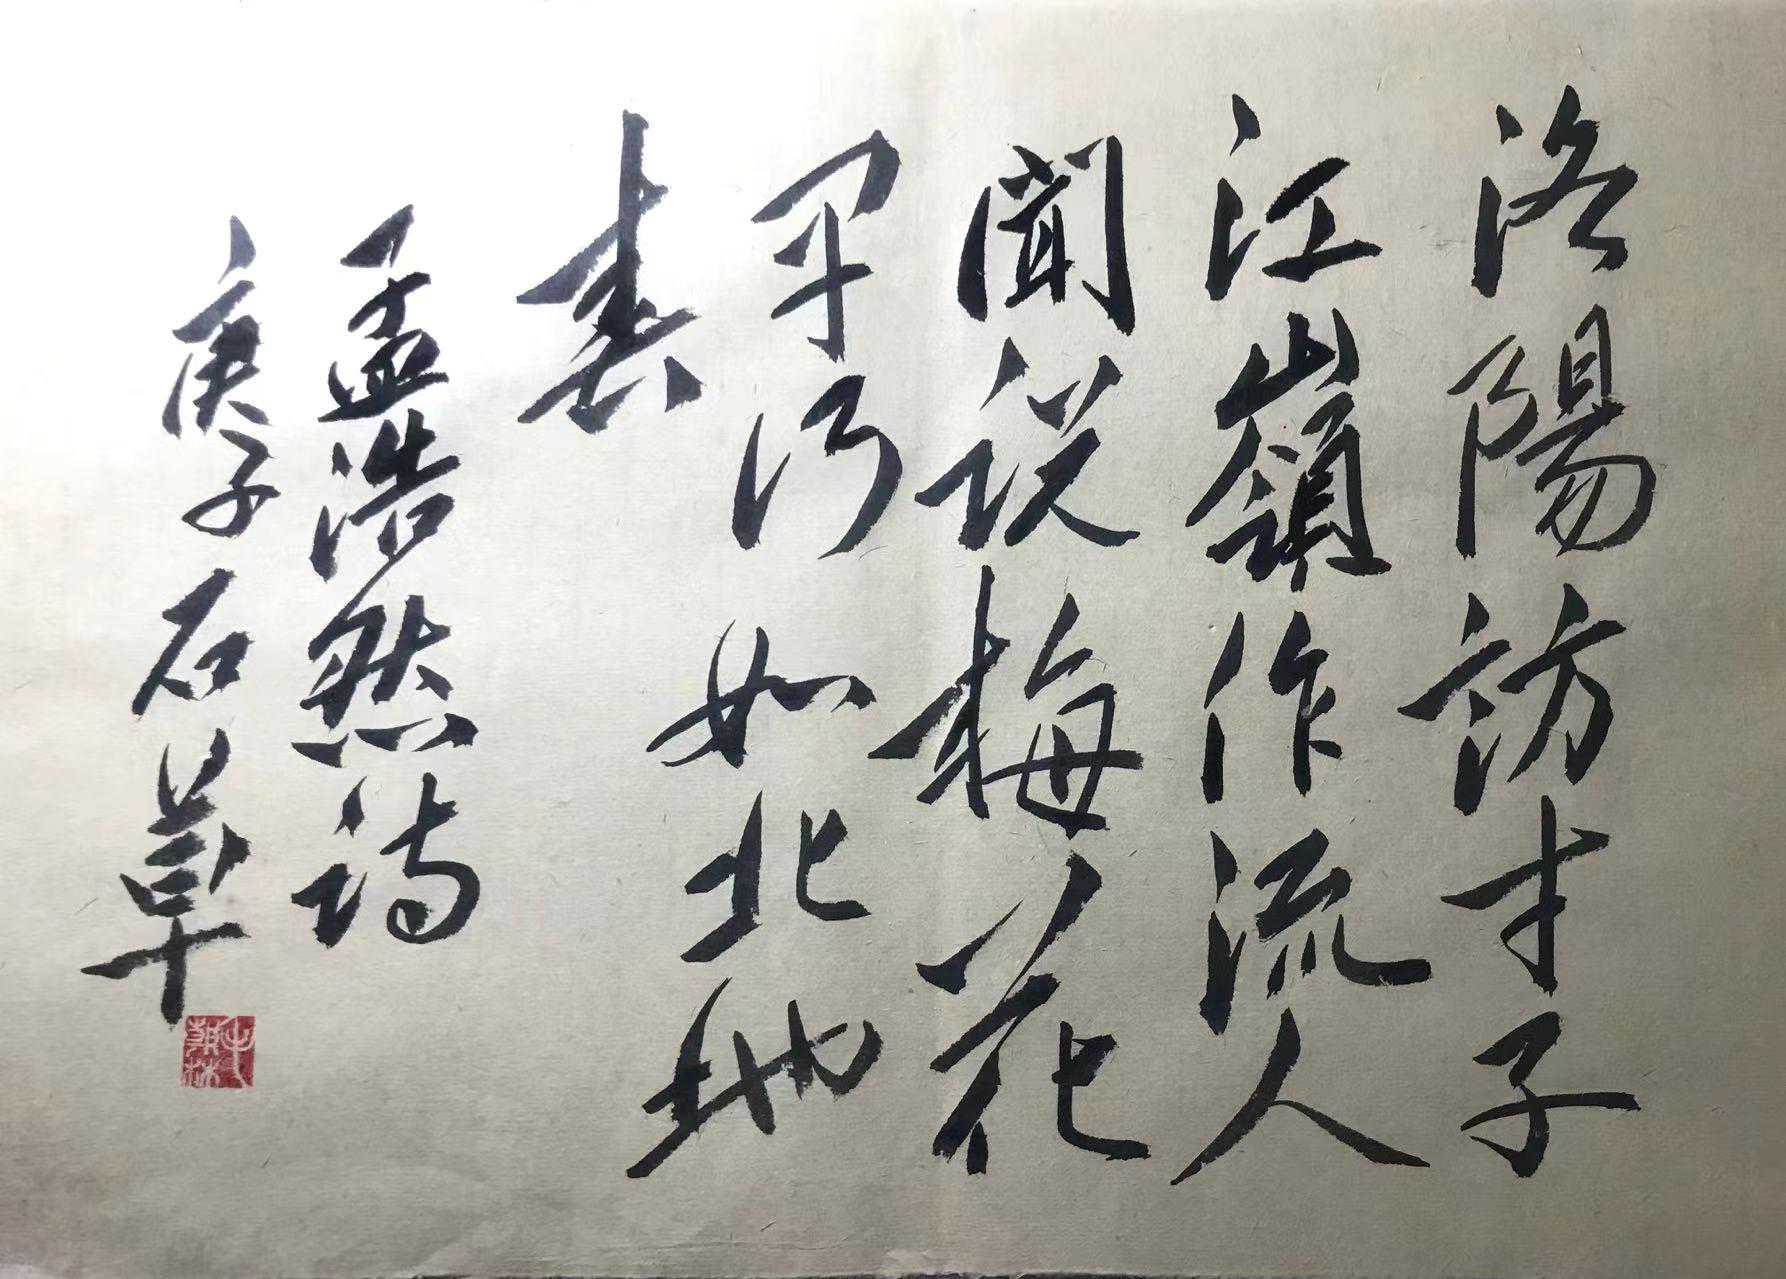 洛陽訪才子
江嶺作流人
聞說梅花
早何如北地
春
孟浩然詩
庚子石草